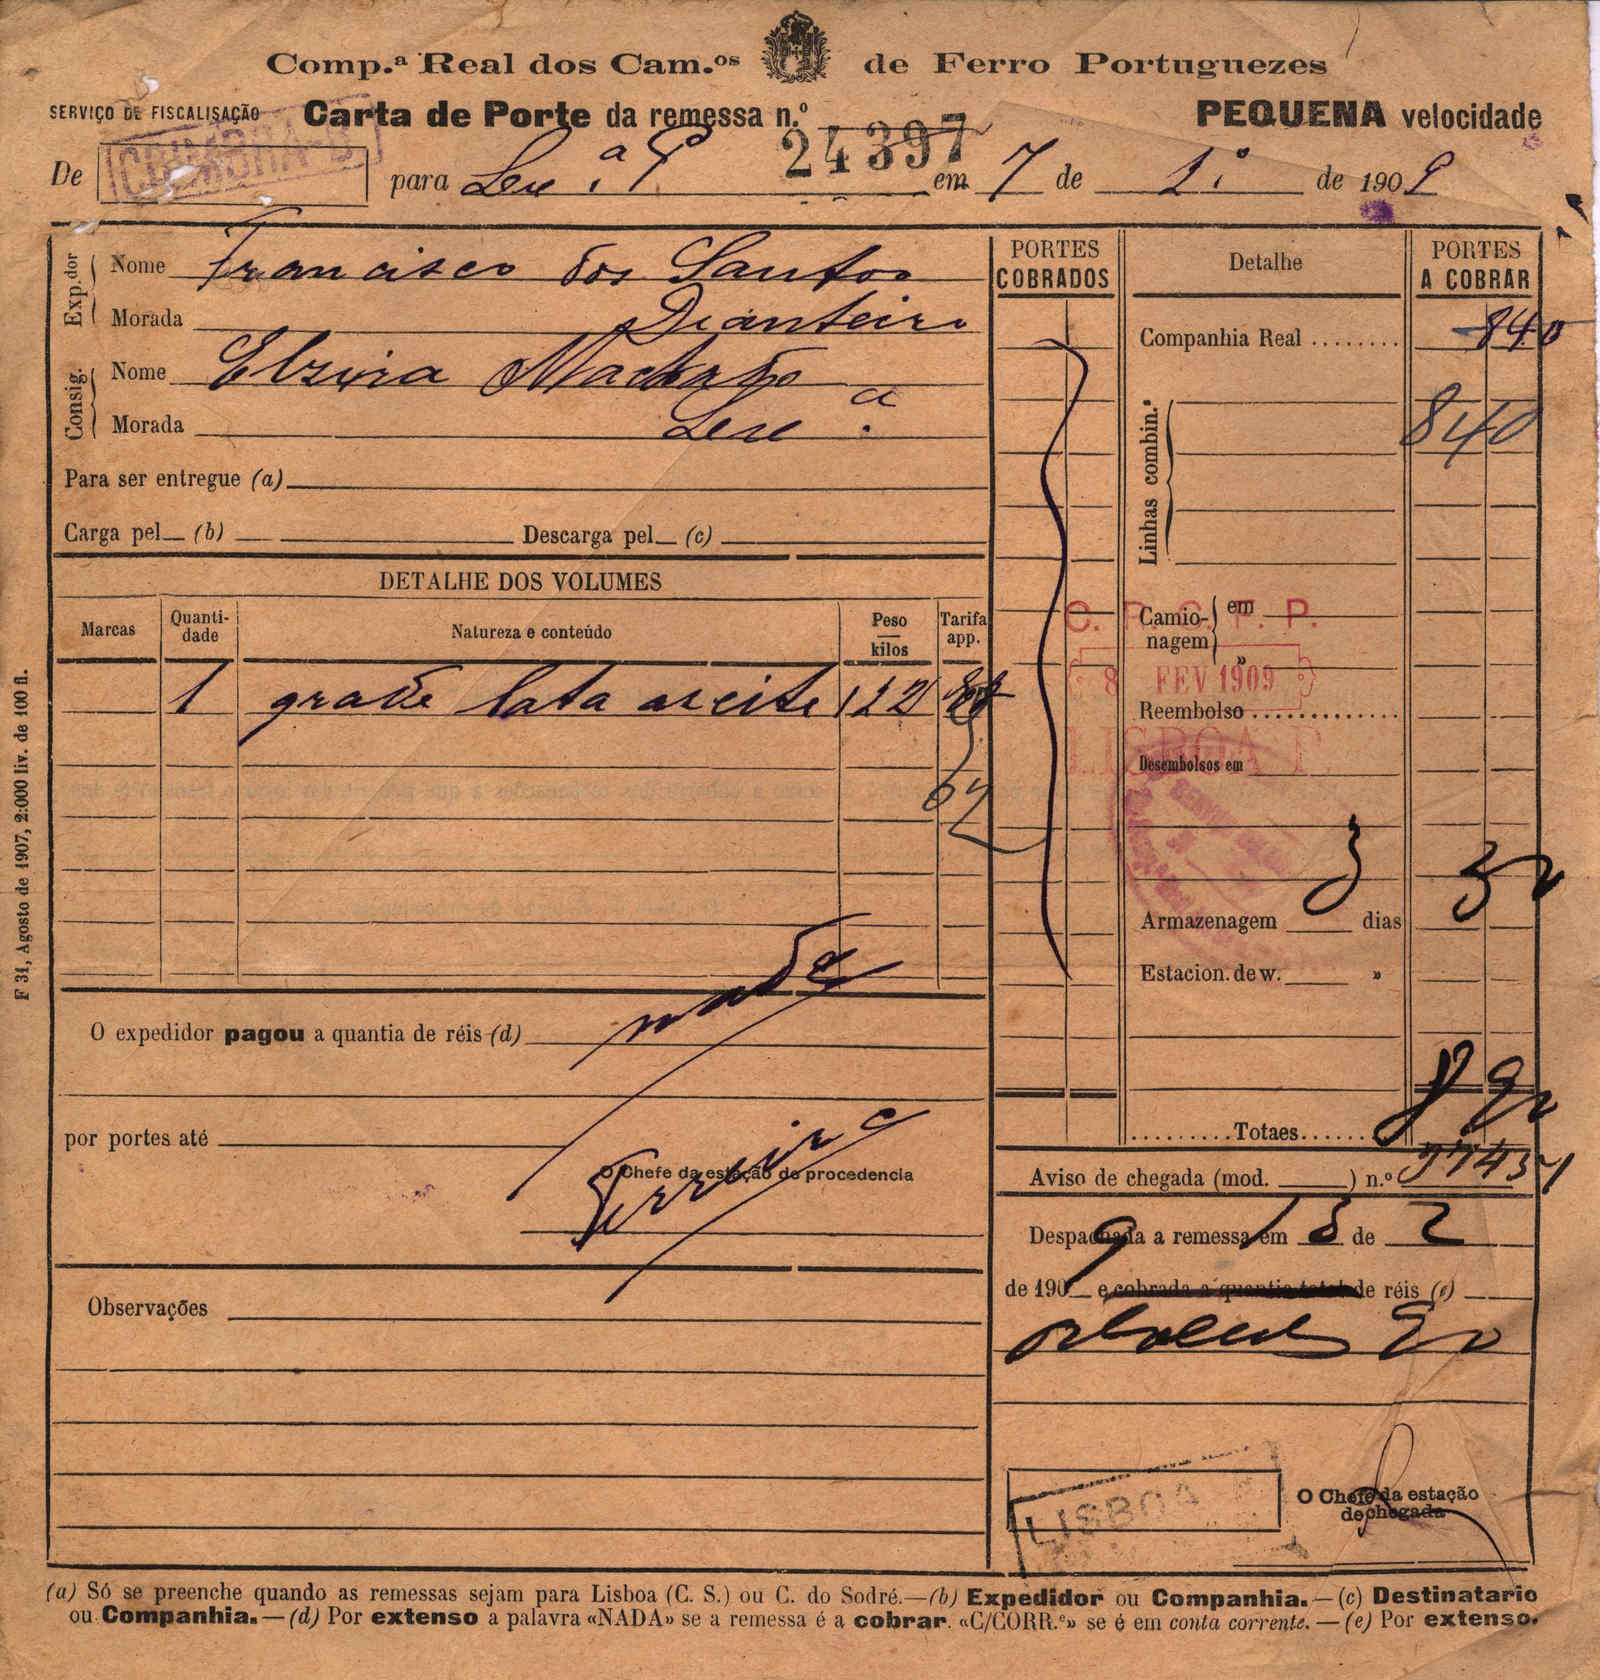 Comp.ª Real dos Cam.ºˢ de Ferro Portuguezes
SERVIÇO DE FISCALISAÇÃO Carta de Porte da remessa n.º 24397 PEQUENA velocidade
De COIMBRA-B para Lxª P em 7 de 2º de 1909
Exp.dor Nome Francisco dos Santos
Morada Dianteiro
Consig. Nome Elzira Machado
Morada Lxª
Para ser entregue (a)
Carga pel (b) Descarga pel (c)
DETALHE DOS VOLUMES
Marcas Quantidade Natureza e conteúdo Peso kilos Tarifa app.
1 grade lata azeite 122
O expedidor pagou a quantia de réis (d) nada
por portes até
O Chefe da estação de procedencia
Ferreira
Observações
PORTES COBRADOS Detalhe PORTES A COBRAR
Companhia Real ........ 840
840
Linhas combin.ˢ
Camionagem em
»
C. P. C. F. P.
8 FEV 1909
LISBOA P.
Reembolso ..............
Desembolsos em
Armazenagem 3 dias 50
Estacion. de w. »
.........Totaes...... 890
Aviso de chegada (mod. ) n.º
Despachada a remessa em 13 de 2
de 1909 e cobrada a quantia total de réis (e)
LISBOA
O Chefe da estação
de chegada
F 31, Agosto de 1907, 2:000 liv. de 100 fl.
(a) Só se preenche quando as remessas sejam para Lisboa (C. S.) ou C. do Sodré.—(b) Expedidor ou Companhia.—(c) Destinatario
ou Companhia.—(d) Por extenso a palavra «NADA» se a remessa é a cobrar. «C/CORR.ᵉ» se é em conta corrente.—(e) Por extenso.